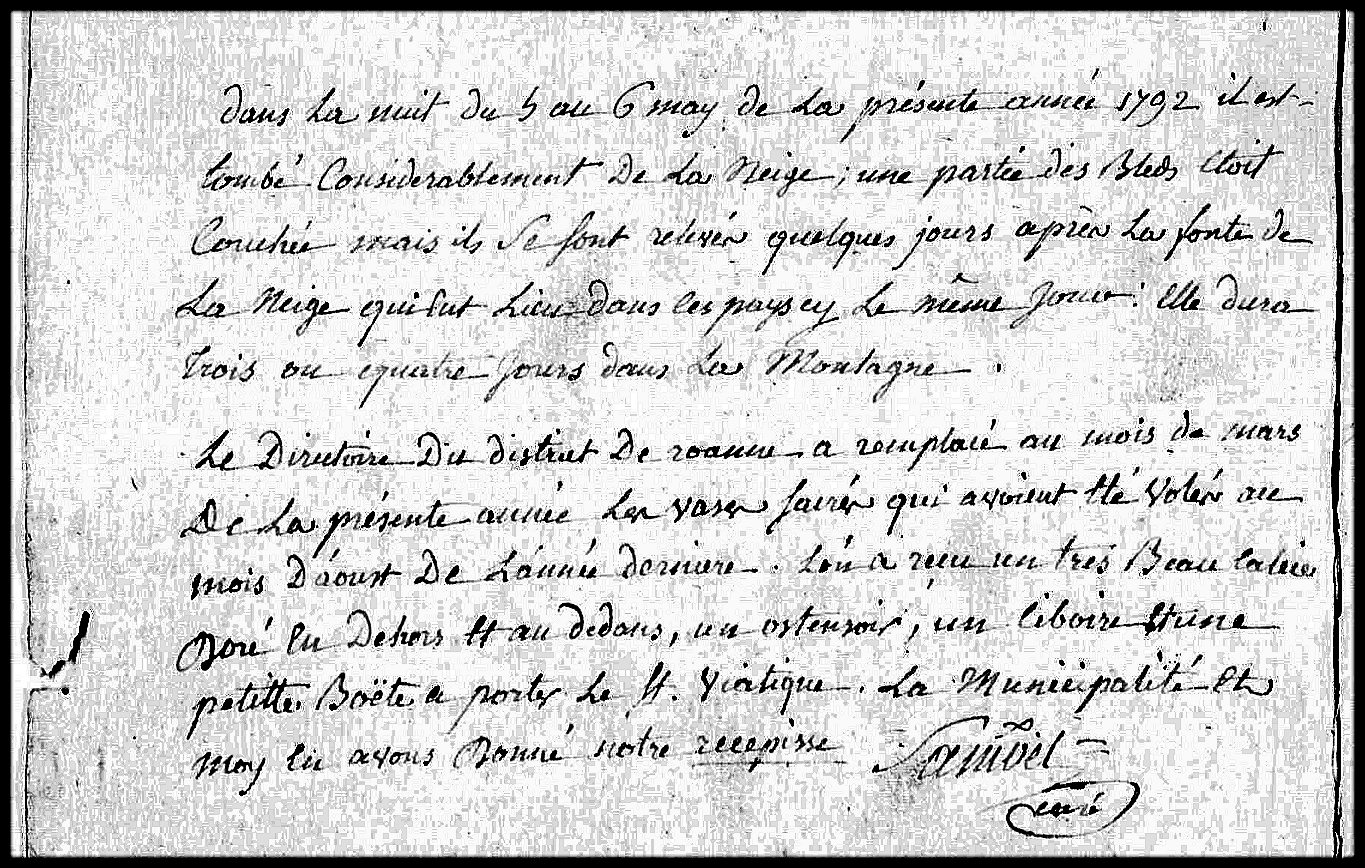 dans La nuit du 5 au 6 may de La présente année 1792 il est
tombé Considerablement De La Neige; une partie des Bleds Etoit
Couchée mais ils Se sont relevés quelques jours après La fonte de
La Neige qui Eut Lieu dans ces pays cy Le même Jour: Elle dura
trois ou quatre Jours dans La Montagne.
Le Directoire Du district De roanne a remplacé au mois de mars
De La présente année Les vases sacrés qui avoient Eté Volés au
mois D'aoust De L'année derniere. L'on a reçu un très Beau Calice
Doré En Dehors Et au dedans, un ostensoir, un Ciboire Et une
petitte Boëte a porter Le St. Viatique. La Municipalité Et
moy En avons Donné notre recepisse
curé